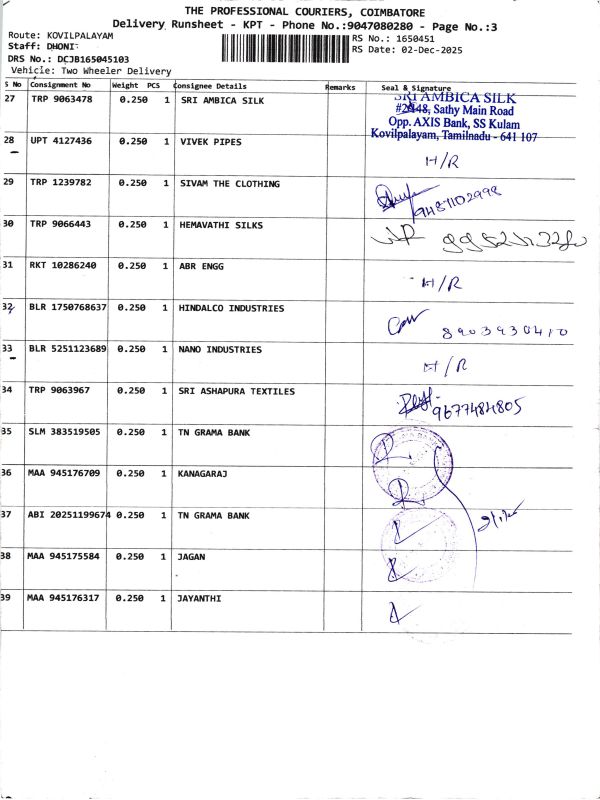 THE PROFESSIONAL COURIERS, COIMBATORE
Delivery Runsheet - KPT - Phone No.:9047080280 - Page No.:3
Route: KOVILPALAYAM
RS No.: 1650451
Staff: DHONI
RS Date: 02-Dec-2025
DRS No.: DCJB165045103
Vehicle: Two Wheeler Delivery
S No Consignment No Weight PCS Consignee Details Remarks Seal & Signature
27 TRP 9063478 0.250 1 SRI AMBICA SILK
SRI AMBICA SILK
#2/148, Sathy Main Road
Opp. AXIS Bank, SS Kulam
Kovilpalayam, Tamilnadu - 641 107
28 UPT 4127436 0.250 1 VIVEK PIPES
H/R
29 TRP 1239782 0.250 1 SIVAM THE CLOTHING
9487102998
30 TRP 9066443 0.250 1 HEMAVATHI SILKS
31 RKT 10286240 0.250 1 ABR ENGG
H/R
32 BLR 1750768637 0.250 1 HINDALCO INDUSTRIES
8903930410
33 BLR 5251123689 0.250 1 NANO INDUSTRIES
H/R
34 TRP 9063967 0.250 1 SRI ASHAPURA TEXTILES
9677484805
35 SLM 383519505 0.250 1 TN GRAMA BANK
36 MAA 945176709 0.250 1 KANAGARAJ
37 ABI 20251199674 0.250 1 TN GRAMA BANK
38 MAA 945175584 0.250 1 JAGAN
39 MAA 945176317 0.250 1 JAYANTHI